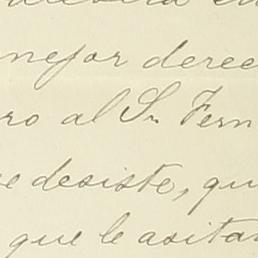 mejor derec
ro al Sr. Fern
e desiste, qu
que le asista